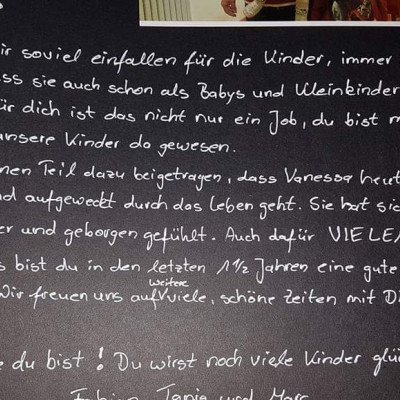 ir soviel einfallen für die Kinder, immer
ss sie auch schon als Babys und Kleinkinder
ür dich ist das nicht nur ein Job, du bist m
unsere Kinder da gewesen.
nen Teil dazu beigetragen, dass Vanessa heut
nd aufgeweckt durch das Leben geht. Sie hat sic
er und geborgen gefühlt. Auch dafür VIELE
s bist du in den letzten 1 1/2 Jahren eine gute
weitere
Wir freuen uns auf viele, schöne Zeiten mit Di
e du bist! Du wirst noch viele Kinder glü
Tanja und Marc